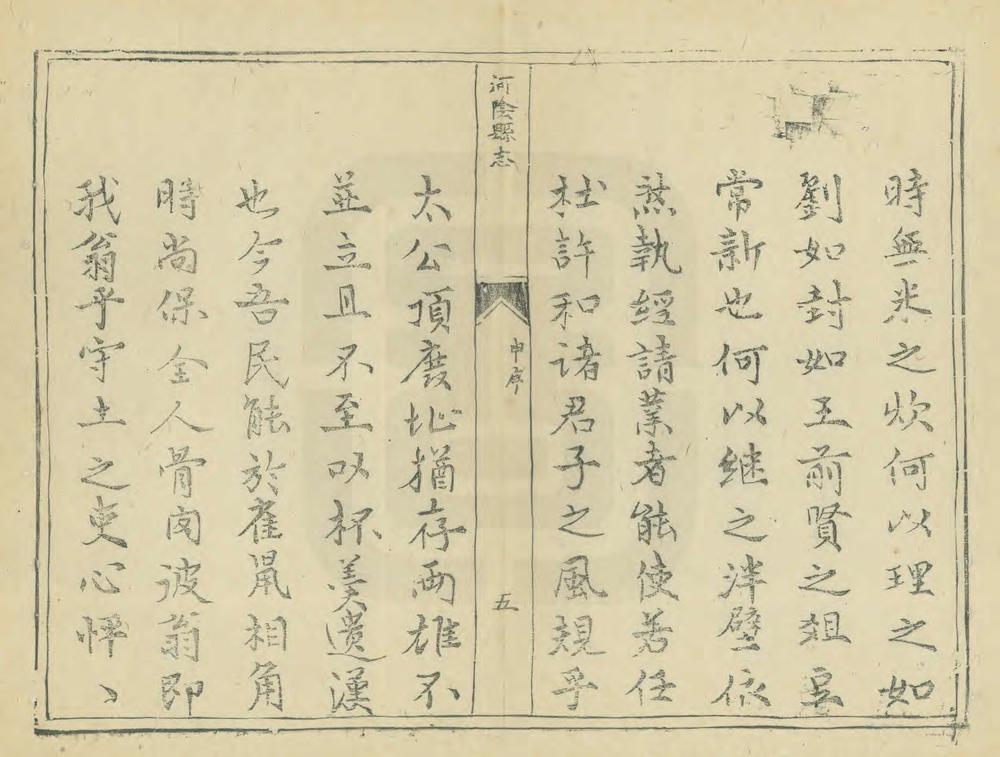 時無米之炊何以理之如
劉如封如王前賢之俎豆
常新也何以继之泮壁依
然執經請業者能使若任
杜許和诸君子之風規乎
河陰縣志
申序
五
太公頂廢址猶存両雄不
並立且不至以杯羮遺漢
也今吾民能於雀鼠相角
時尚保全人骨肉彼翁即
我翁乎守土之吏心怦ヽ